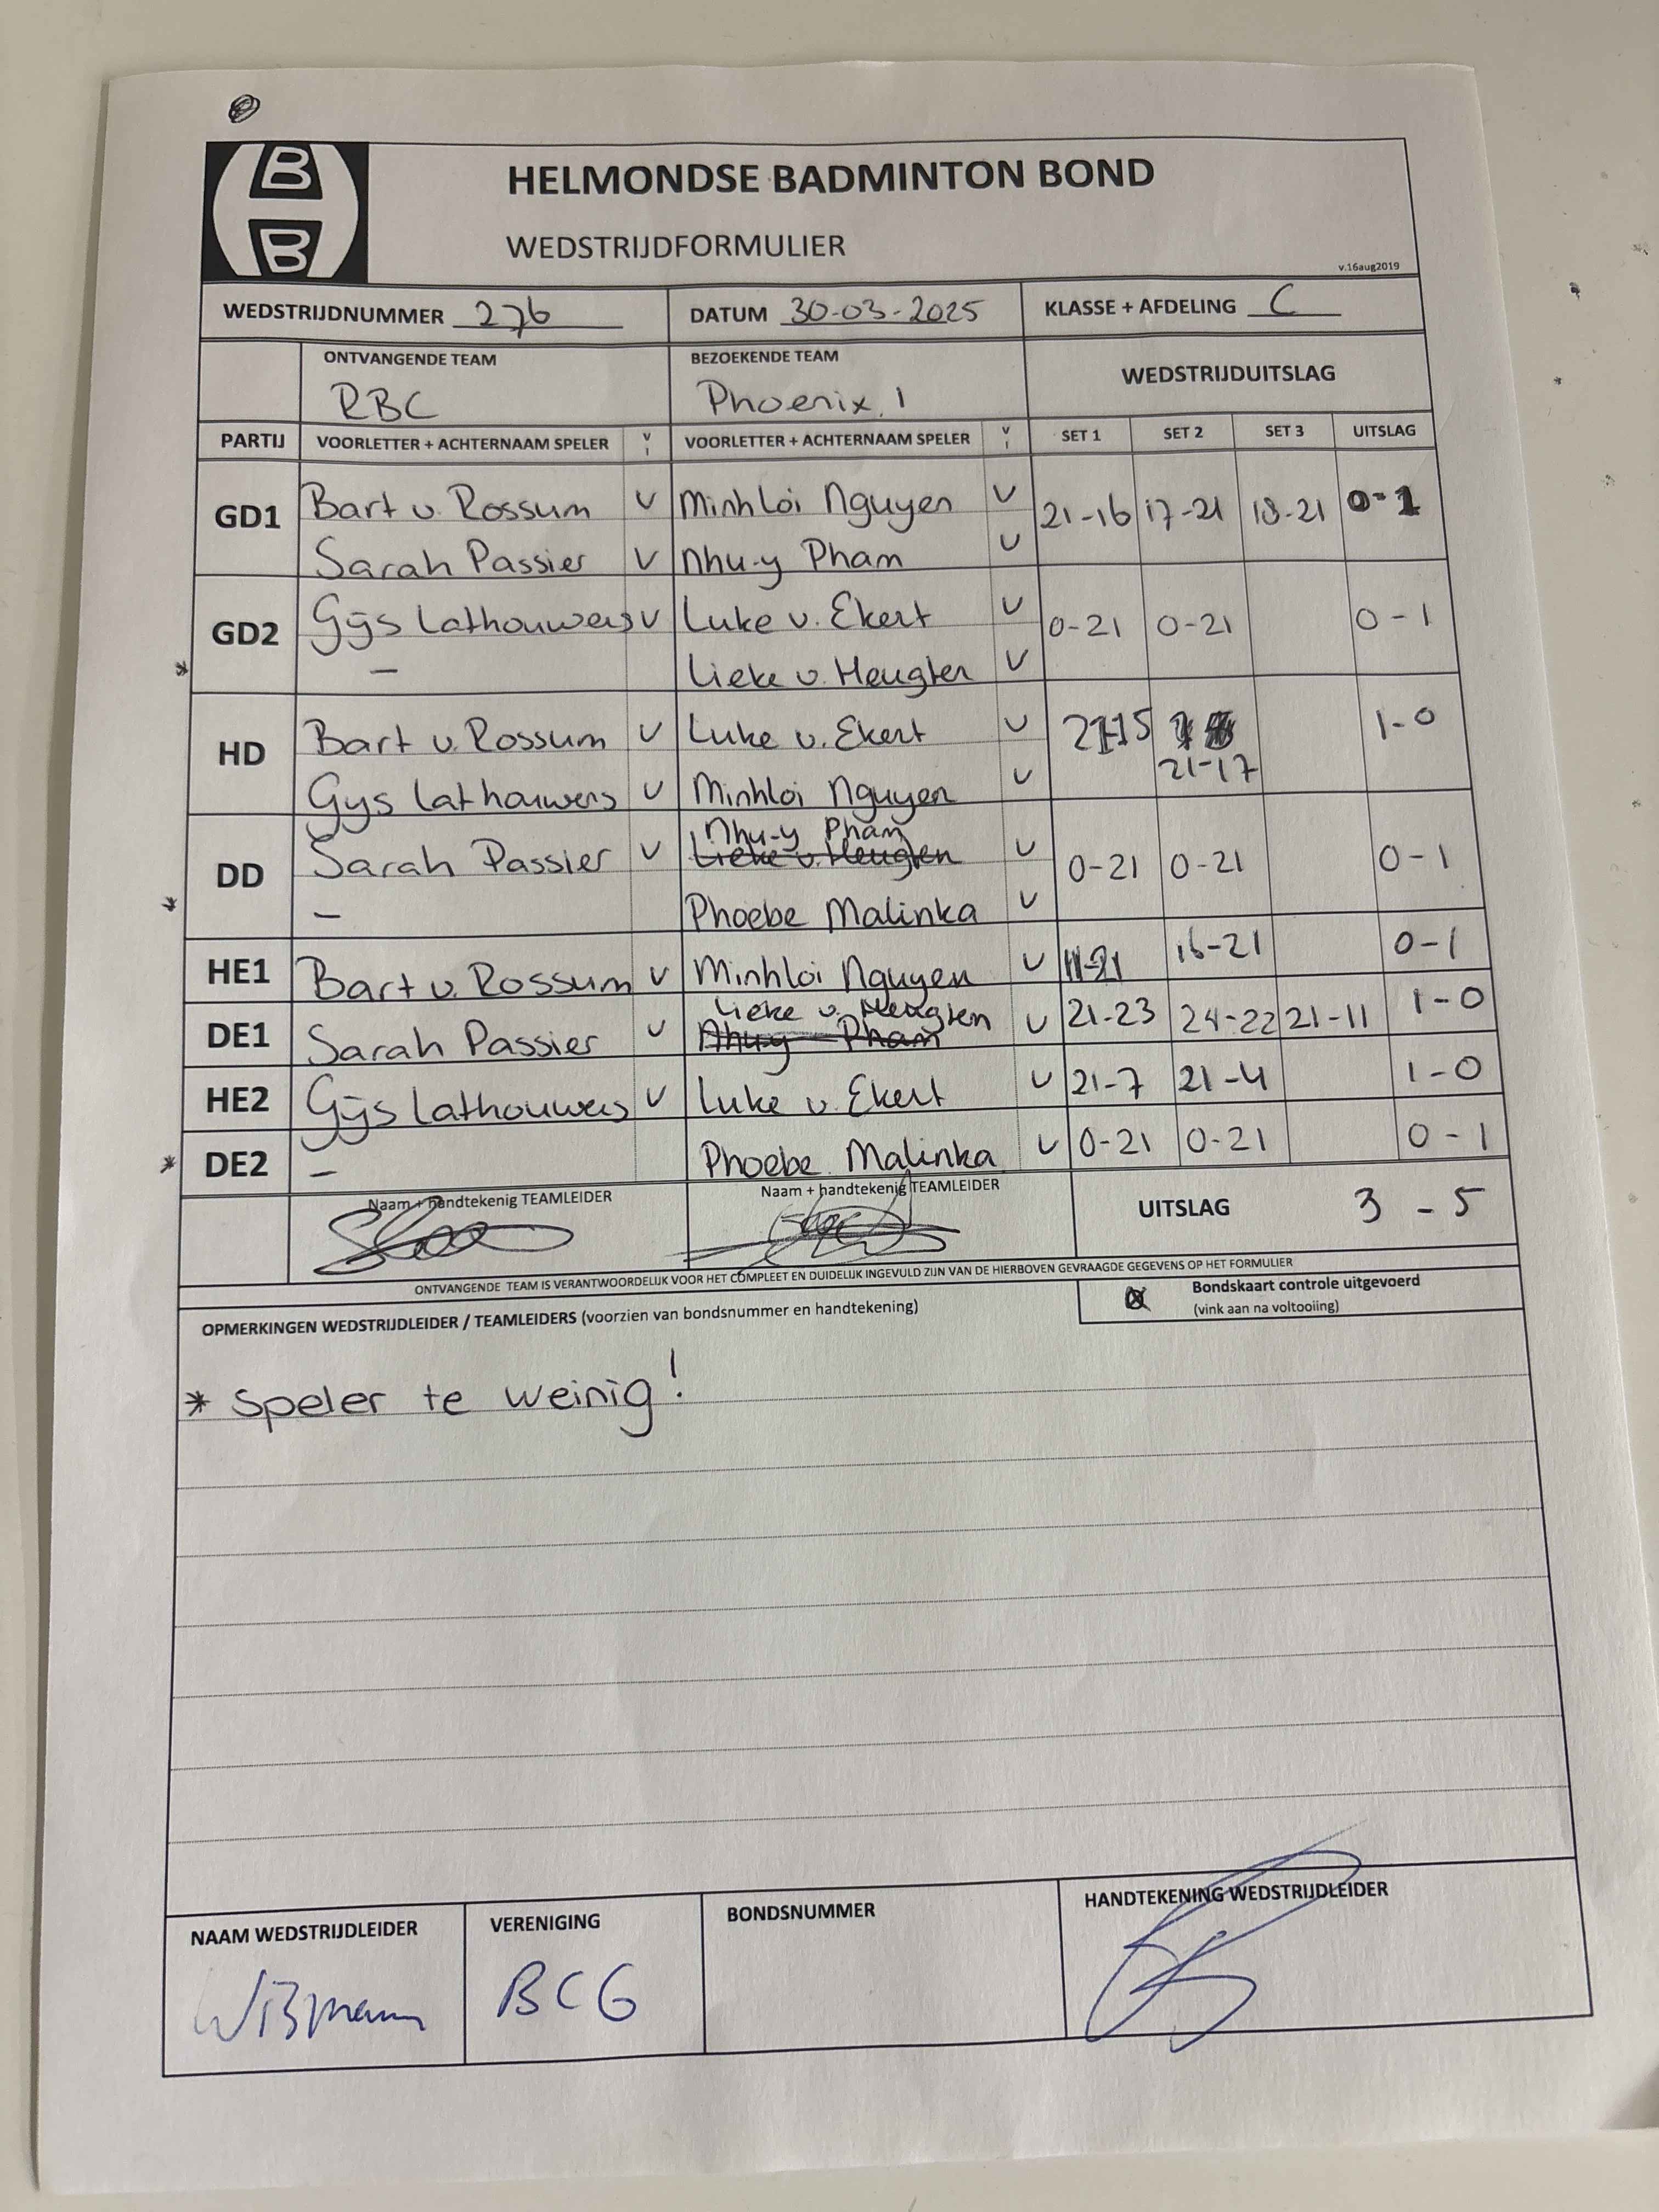 B
B
HELMONDSE BADMINTON BOND
WEDSTRIJDFORMULIER
v.16aug2019
WEDSTRIJDNUMMER 276 DATUM 30-03-2025 KLASSE + AFDELING C
ONTVANGENDE TEAM BEZOEKENDE TEAM WEDSTRIJDUITSLAG
RBC Phoenix 1
PARTIJ VOORLETTER + ACHTERNAAM SPELER V I VOORLETTER + ACHTERNAAM SPELER V I SET 1 SET 2 SET 3 UITSLAG
GD1 Bart v. Rossum V Minhloi Nguyen V 21-16 17-21 18-21 0-1
Sarah Passier V Nhu-y Pham V
GD2 Gijs Lathouwers V Luke v. Ekert V 0-21 0-21 0-1
* - Lieke v. Heugten V
HD Bart v. Rossum V Luke v. Ekert V 21-15 21-17 1-0
Gijs Lathouwers V Minhloi Nguyen V
DD Sarah Passier V Nhu-y Pham V 0-21 0-21 0-1
Lieke v. Heugten
* - Phoebe Malinka V
HE1 Bart v. Rossum V Minhloi Nguyen V 11-21 16-21 0-1
DE1 Sarah Passier V Lieke v. Heugten V 21-23 24-22 21-11 1-0
Nhu-y Pham
HE2 Gijs Lathouwers V Luke v. Ekert V 21-7 21-4 1-0
* DE2 - Phoebe Malinka V 0-21 0-21 0-1
Naam + handtekenig TEAMLEIDER Naam + handtekenig TEAMLEIDER UITSLAG 3 - 5
ONTVANGENDE TEAM IS VERANTWOORDELIJK VOOR HET COMPLEET EN DUIDELIJK INGEVULD ZIJN VAN DE HIERBOVEN GEVRAAGDE GEGEVENS OP HET FORMULIER
Bondskaart controle uitgevoerd
(vink aan na voltooiing)
OPMERKINGEN WEDSTRIJDLEIDER / TEAMLEIDERS (voorzien van bondsnummer en handtekening)
* Speler te weinig!
NAAM WEDSTRIJDLEIDER VERENIGING BONDSNUMMER HANDTEKENING WEDSTRIJDLEIDER
BCG